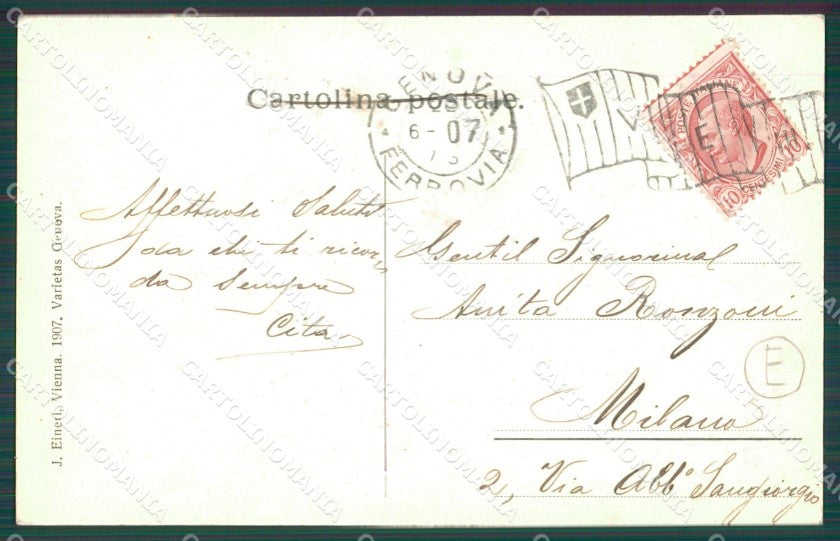 Cartolina postale.
GENOVA
6-07
FERROVIA
V E
POSTE ITALIANE
10 CENTESIMI 10
Affettuosi saluti
da chi ti ricor-
da sempre
Cita
Gentil Signorina
Anita Ronzoni
Milano
2, Via Abb° Sangiorgio
E
J. Eined., Vienna. 1907. Varietas Genova.
CARTOLINOMANIA